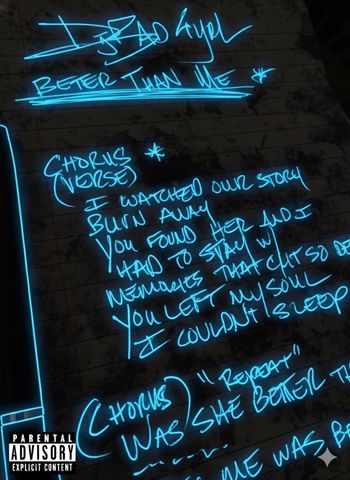 BETER THAN ME *
CHORUS *
(VERSE)
I WATCHED OUR STORY
BURN AWAY
YOU FOUND HER AND I
HAD TO STAY W/
MEMORIES THAT CUT SO DE
YOU LEFT MY SOUL
I COULDN'T SLEEP
(CHORUS) "REPEAT"
WAS SHE BETTER TH
ME WAS BE
PARENTAL
ADVISORY
EXPLICIT CONTENT